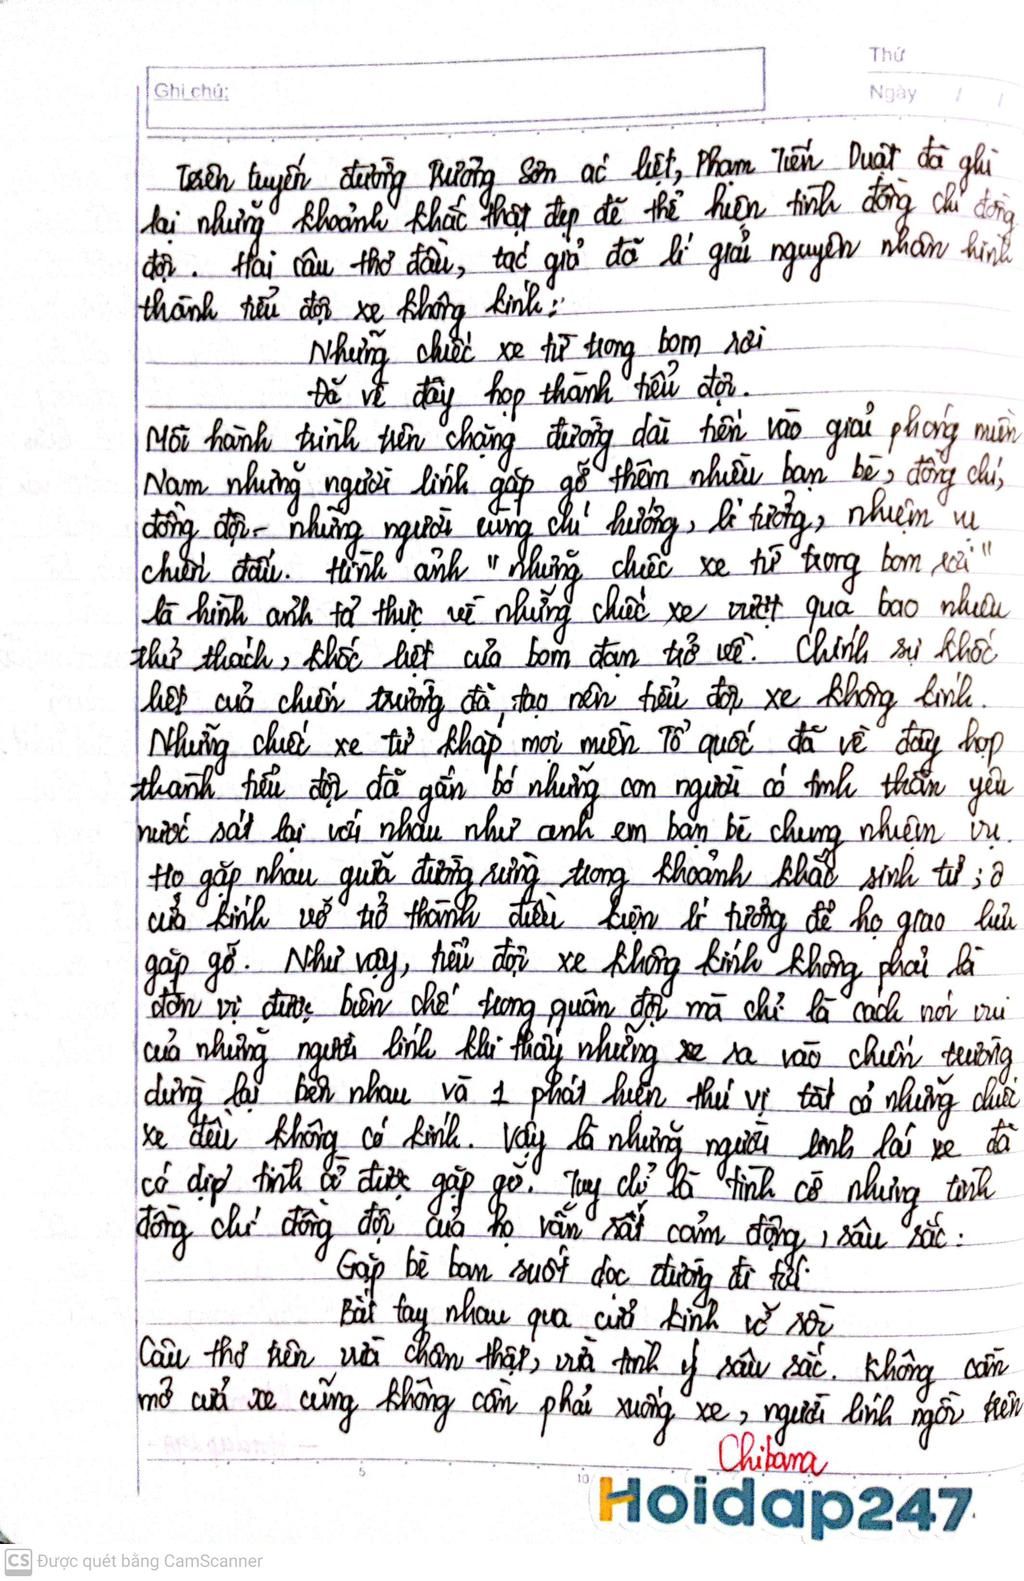 Thứ
Ghi chú:
Ngày / /
Trên tuyến đường Trường Sơn ác liệt, Phạm Tiến Duật đã ghi
lại những khoảnh khắc thật đẹp đẽ thể hiện tình đồng chí đồng
đội. Hai câu thơ đầu, tác giả đã lí giải nguyên nhân hình
thành tiểu đội xe không kính:
Những chiếc xe từ trong bom rơi
Đã về đây họp thành tiểu đội.
Mỗi hành trình trên chặng đường dài tiến vào giải phóng miền
Nam những người lính gặp gỡ thêm nhiều bạn bè, đồng chí,
đồng đội - những người cùng chí hướng, lí tưởng, nhiệm vụ
chiến đấu. Hình ảnh "những chiếc xe từ trong bom rơi"
là hình ảnh tả thực về những chiếc xe vượt qua bao nhiêu
thử thách, khốc liệt của bom đạn trở về. Chính sự khốc
liệt của chiến trường đã tạo nên tiểu đội xe không kính.
Những chiếc xe từ khắp mọi miền Tổ quốc đã về đây họp
thành tiểu đội đã gắn bó những con người có tinh thần yêu
nước sát lại với nhau như anh em bạn bè chung nhiệm vụ.
Họ gặp nhau giữa đường rừng trong khoảnh khắc sinh tử; ô
cửa kính vỡ trở thành điều kiện lí tưởng để họ giao lưu
gặp gỡ. Như vậy, tiểu đội xe không kính không phải là
đơn vị được biên chế trong quân đội mà chỉ là cách nói vui
của những người lính khi thấy những xe ra vào chiến trường
dừng lại bên nhau và 1 phát hiện thú vị tất cả những chiếc
xe đều không có kính. Vậy là những người lính lái xe đã
có dịp tình cờ được gặp gỡ. Tuy chỉ là tình cờ nhưng tình
đồng chí đồng đội của họ vẫn rất cảm động, sâu sắc:
Gặp bè bạn suốt dọc đường đi tới
Bắt tay nhau qua cửa kính vỡ rồi
Câu thơ trên vừa chân thật, vừa tình ý sâu sắc. Không cần
mở cửa xe cũng không cần phải xuống xe, người lính ngồi trên
Chibana
5 10
Hoidap247
CS Được quét bằng CamScanner